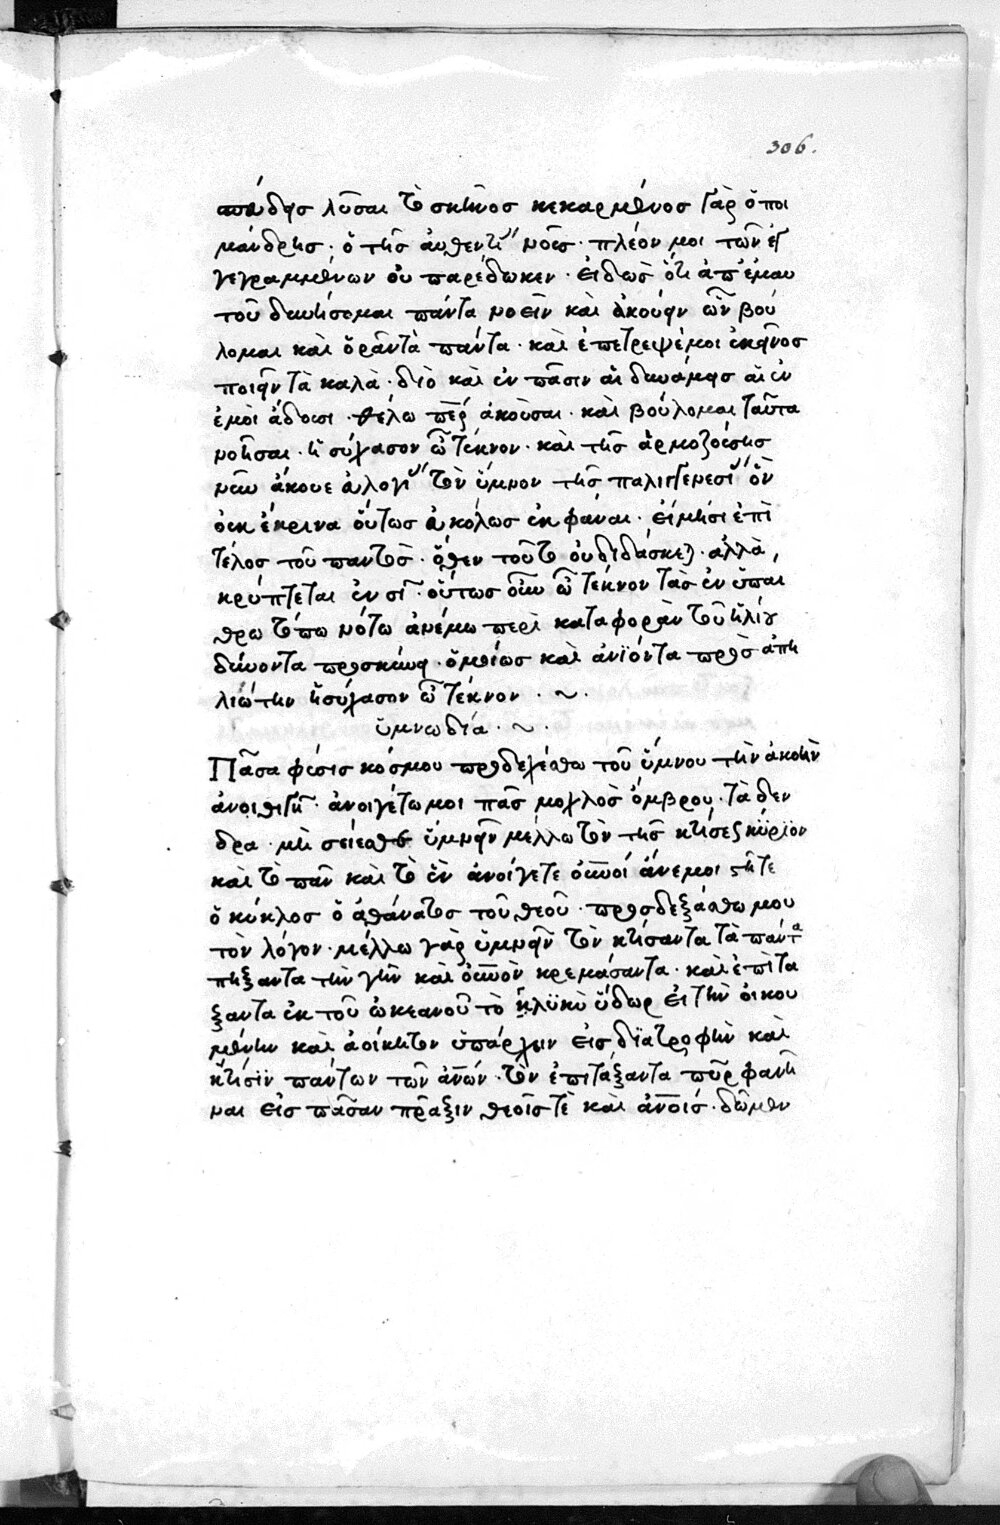 306.
σπεύδης λῦσαι τὸ σκῆνος κεκαρμένος γὰρ ὅ ποι
μάνδρης · ὁ τῆς αὐθεντί νοῦς · πλέον μοι τῶν ἐγ
γεγραμμένων οὐ παρέδωκεν · εἰδὼς ὅτι ἀπ' ἐμαυ
τοῦ δυνήσομαι πάντα νοεῖν καὶ ἀκούειν ὧν βού
λομαι καὶ ὁρᾶν τὰ πάντα · καὶ ἐπέτρεψέ μοι ἐκεῖνος
ποιεῖν τὰ καλά · διὸ καὶ ἐν πᾶσιν αἱ δυνάμεις αἱ ἐν
ἐμοὶ ἄδουσι · θέλω περ ἀκοῦσαι · καὶ βούλομαι ταῦτα
νοῆσαι · ἡσύχασον ὦ τέκνον · καὶ τῆς ἁρμοζούσης
νῦν ἄκουε εὐλογί τὸν ὕμνον τῆς παλιγγενεσί ὃν
οὐκ ἔκρινα οὕτως εὐκόλως ἐκφάναι · εἰ μή σι ἐπὶ
τέλος τοῦ παντός · ὅθεν τοῦτο οὐ διδάσκεται · ἀλλὰ,
κρύπτεται ἐν σιγῇ · οὕτως οὖν ὦ τέκνον στὰς ἐν ὑπαι
θρω τόπω νότω ἀνέμω περὶ καταφορὰν τοῦ ἡλίου
δύνοντα προσκύνει · ὁμοίως καὶ ἀνιόντα πρὸς ἀπη
λιώτην ἡσύχασον ὦ τέκνον · ~ ·
ὑμνωδία · ~ ·
Πᾶσα φύσις κόσμου προσδεχέσθω τοῦ ὕμνου τὴν ἀκοὴν
ἀνοίγηθι γῆ · ἀνοιγέτω μοι πᾶς μοχλὸς ὄμβρου · τὰ δέν
δρα · μὴ σείεσθε ὑμνεῖν μέλλω τὸν τῆς κτίσεως κύριον
καὶ τὸ πᾶν καὶ τὸ ἓν ἀνοίγετε οὐνοί ἄνεμοι στῆτε
ὁ κύκλος ὁ ἀθάνατος τοῦ θεοῦ · προσδεξάσθω μου
τὸν λόγον · μέλλω γὰρ ὑμνεῖν τὸν κτίσαντα τὰ πάντα
πήξαντα τὴν γῆν καὶ οὐνὸν κρεμάσαντα · καὶ ἐπιτά
ξαντα ἐκ τοῦ ὠκεανοῦ τὸ γλυκὺ ὕδωρ εἰ τὴν οἰκου
μένην καὶ ἀοίκητον ὑπάρχειν εἰς διατροφὴν καὶ
κτίσιν πάντων τῶν ἀνων · τὸν ἐπιτάξαντα πῦρ φανῆ
ναι εἰς πᾶσαν πρᾶξιν θεοῖς τὲ καὶ ἀνοις · δῶμεν